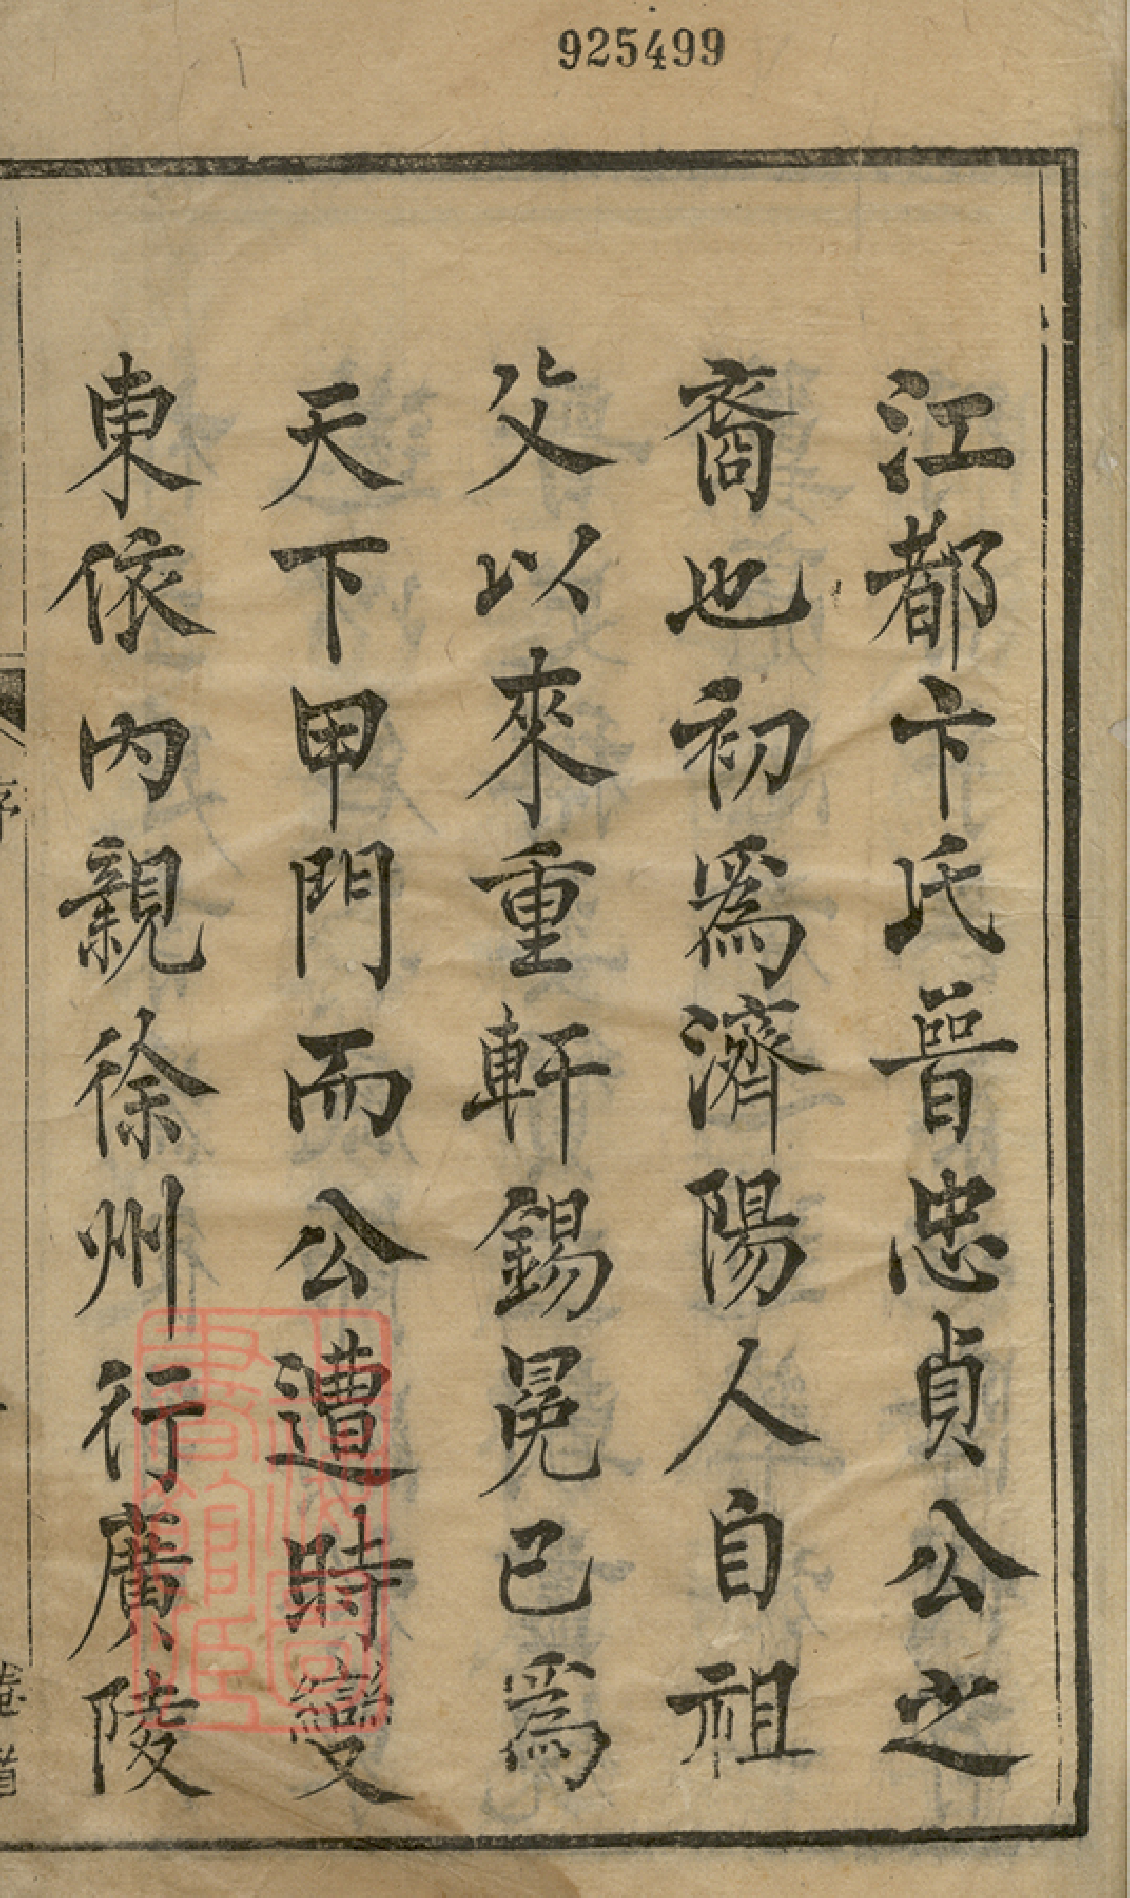 925499
江都卞氏晉忠貞公之
裔也初爲濟陽人自祖
父以來重軒錫冕已爲
天下甲門而公遭時變
東依內親徐州行廣陵
序